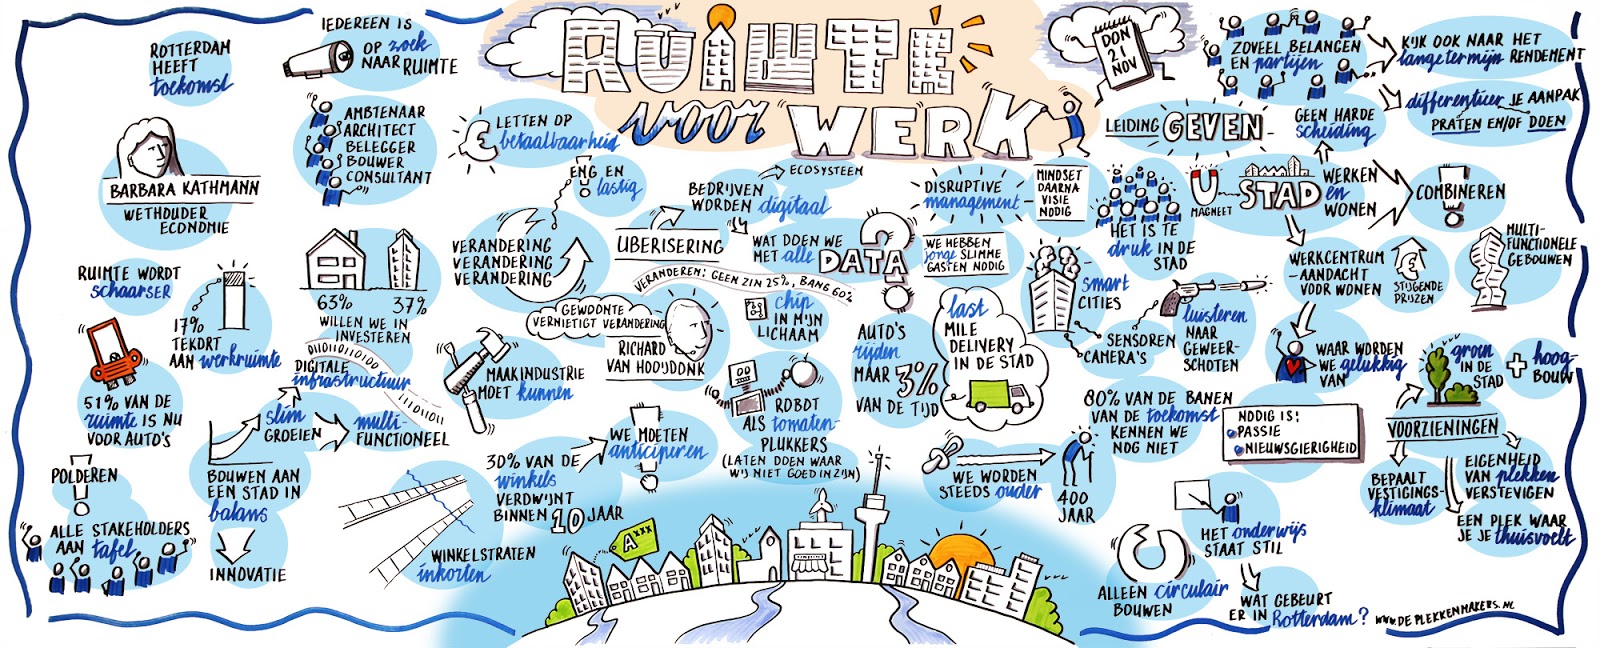 RUIMTE
voor WERK
DON
21
NOV
ROTTERDAM
HEEFT
toekomst
IEDEREEN IS
OP zoek
NAAR RUIMTE
AMBTENAAR
ARCHITECT
BELEGGER
BOUWER
CONSULTANT
BARBARA KATHMANN
WETHOUDER
ECONOMIE
RUIMTE WORDT
schaarser
17%
TEKORT
AAN werkruimte
51% VAN DE
ruimte IS NU
VOOR AUTO'S
POLDEREN
ALLE STAKEHOLDERS
AAN tafel
63% 37%
WILLEN WE IN
INVESTEREN
DIGITALE
infrastructuur
slim
GROEIEN
multi-
FUNCTIONEEL
BOUWEN AAN
EEN STAD IN
balans
INNOVATIE
€ LETTEN OP
betaalbaarheid
ENG EN
lastig
VERANDERING
VERANDERING
VERANDERING
MAAKINDUSTRIE
MOET kunnen
30% VAN DE
winkels
VERDWIJNT
BINNEN 10 JAAR
WE MOETEN
anticiperen
WINKELSTRATEN
inkorten
ECOSYSTEEM
BEDRIJVEN
WORDEN digitaal
UBERISERING
WAT DOEN WE
MET alle DATA?
VERANDEREN: GEEN ZIN 25%, BANG 60%
GEWOONTE
VERNIETIGT VERANDERING
RICHARD
VAN HOOIJDONK
chip
IN MIJN
LICHAAM
ROBOT
ALS tomaten-
PLUKKERS
(LATEN DOEN WAAR
WIJ NIET GOED IN ZIJN)
AUTO'S
rijden
MAAR 3%
VAN DE TIJD
DISRUPTIVE
management
WE HEBBEN
jonge SLIMME
GASTEN NODIG
last
MILE
DELIVERY
IN DE STAD
WE WORDEN
STEEDS ouder
400
JAAR
MINDSET
DAARNA
VISIE
NODIG
HET IS TE
druk IN DE
STAD
smart
CITIES
SENSOREN
CAMERA'S
luisteren
NAAR
GEWEER-
SCHOTEN
80% VAN DE BANEN
VAN DE toekomst
KENNEN WE
NOG NIET
NODIG IS:
PASSIE
NIEUWSGIERIGHEID
HET onderwijs
STAAT STIL
ALLEEN circulair
BOUWEN
WAT GEBEURT
ER IN Rotterdam?
LEIDING GEVEN
ZOVEEL BELANGEN
EN partijen
KIJK OOK NAAR HET
langetermijn RENDEMENT
differentieer JE AANPAK
PRATEN EN/OF DOEN
GEEN HARDE
scheiding
MAGNEET
STAD
WERKEN
en
WONEN
COMBINEREN
WERKCENTRUM
-AANDACHT
VOOR WONEN
€
STIJGENDE
PRIJZEN
MULTI-
FUNCTIONELE
GEBOUWEN
WAAR WORDEN
WE gelukkig
VAN
groen
IN DE
STAD
+ hoog-
BOUW
VOORZIENINGEN
BEPAALT
VESTIGINGS-
klimaat
EIGENHEID
VAN plekken
VERSTEVIGEN
EEN PLEK WAAR
JE JE thuisvoelt
AXXX
WWW.DEPLEKKENMAKERS.NL